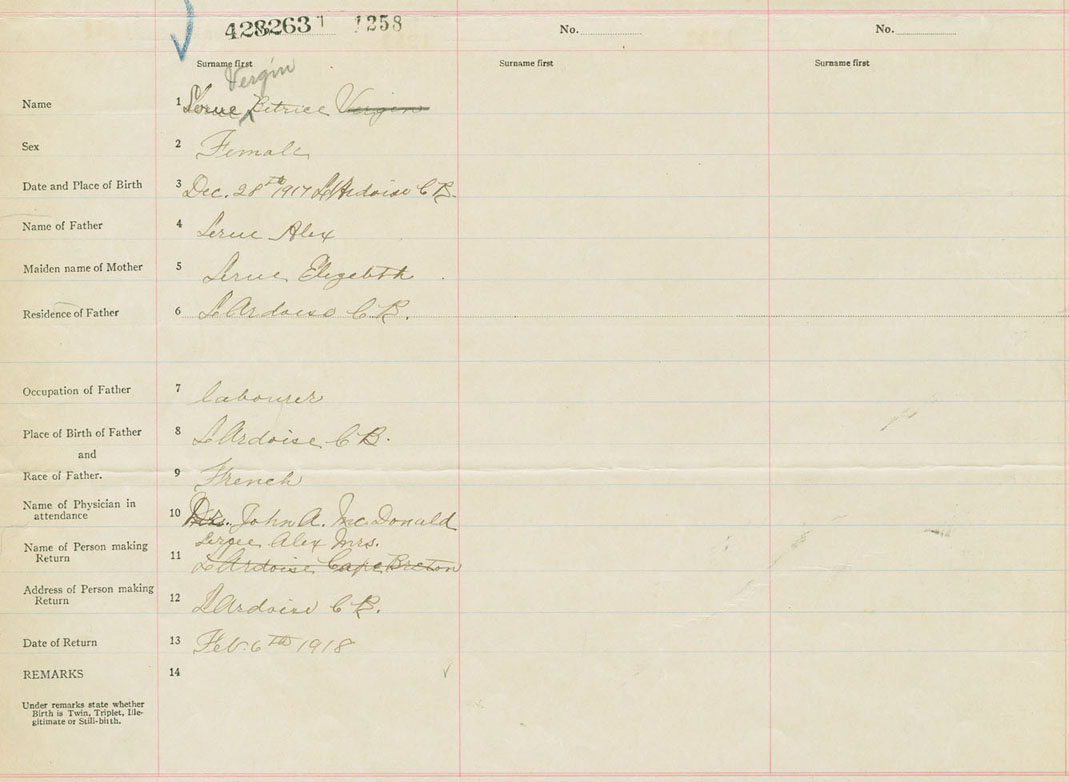 428263 1 1258
No. No.
Surname first Surname first Surname first
Vergin
Name 1 Lerue Letrice Vergin
Sex 2 Female
Date and Place of Birth 3 Dec. 28th 1917 L'Ardoise C B.
Name of Father 4 Lerue Alex
Maiden name of Mother 5 Lerue Elizebth
Residence of Father 6 L'Ardoise C B.
Occupation of Father 7 labourer
Place of Birth of Father 8 L'Ardoise C B.
and
Race of Father. 9 French
Name of Physician in
attendance 10 John A. McDonald
Lerue Alex Mrs.
Name of Person making
Return 11 L'Ardoise Cape Breton
Address of Person making
Return 12 L'Ardoise C B.
Date of Return 13 Feb. 6th 1918
REMARKS 14
Under remarks state whether
Birth is Twin, Triplet, Ille-
gitimate or Still-birth.